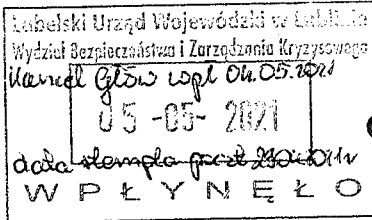 Lubelski Urząd Wojewódzki w Lublinie
Wydział Bezpieczeństwa i Zarządzania Kryzysowego
wpł 04.05.2021
05 -05- 2021
data stempla
WPŁYNĘŁO